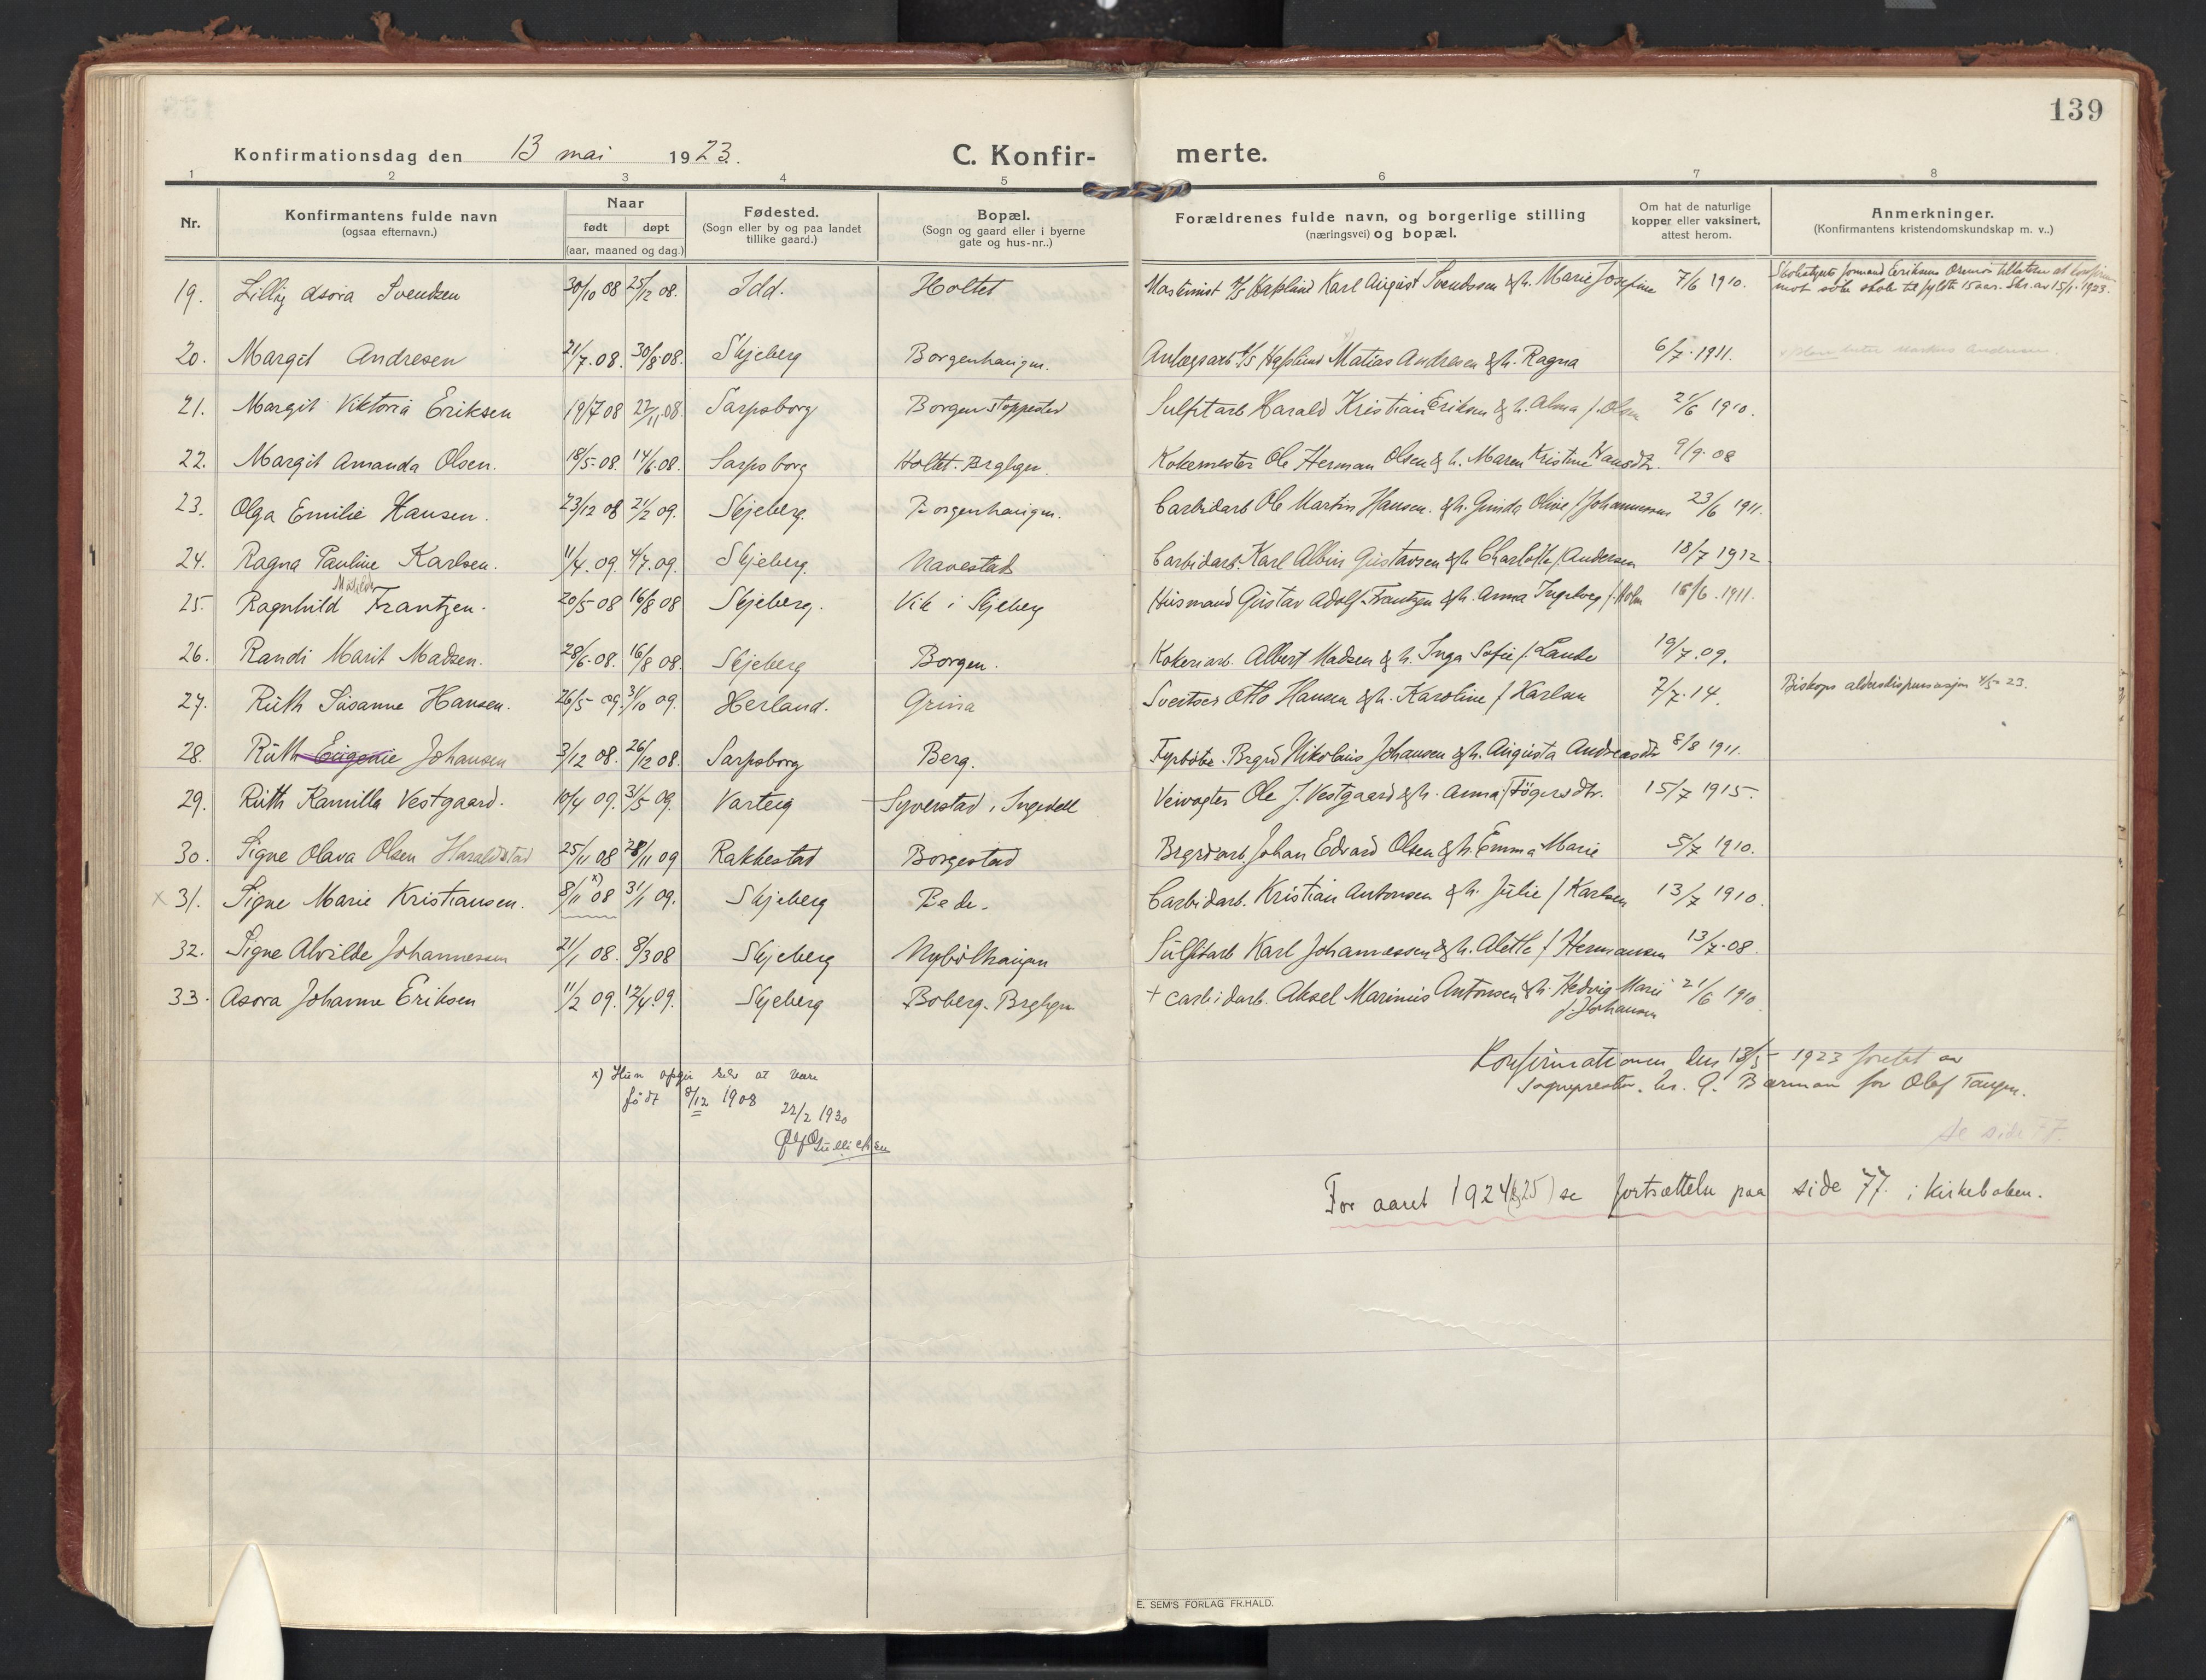 139
Konfirmationsdag den 13 mai 1923.
C. Konfir-
merte.
1 2 3 4 5 6 7 8
Nr.
Konfirmantens fulde navn
(ogsaa efternavn.)
Naar
født døpt
(aar, maaned og dag.)
Fødested.
(Sogn eller by og paa landet
tillike gaard.)
Bopæl.
(Sogn og gaard eller i byerne
gate og hus-nr..)
Forældrenes fulde navn, og borgerlige stilling
(næringsvei) og bopæl.
Om hat de naturlige
kopper eller vaksinert,
attest herom.
Anmerkninger.
(Konfirmantens kristendomskundskap m. v..)
19. Lilly Asora Svendsen 30/10 08 25/12 08. Idd. Holtet Maskinist A/S Hafslund Karl August Svendssen & h. Marie Josefine 7/6 1910.
mot søke skole til fyldte 15 aar. Skr. av 15/1-1923.
20. Margit Andresen 21/7.08. 30/8.08. Skjeberg Borgenhaugen. Anlægsarb A/S Hafslund Matias Andresen & h. Ragna 6/7.1911.
21. Margit Viktoria Eriksen 19/7 08 22/11 08. Sarpsborg Borgen stoppested Sulfitarb Harald Kristian Eriksen & h. Alma f. Olsen 21/6 1910.
22. Margit Amanda Olsen. 18/5-08. 14/6.08. Sarpsborg Holtet. Brghgen. Kokemester Ole Herman Olsen & h. Maren Kristine Hansdtr. 9/9.08
23. Olga Emilie Hansen. 23/12 08 21/2 09. Skjeberg. Borgenhaugen. Carbidarb Ole Martin Hansen. & h. Gunda Olive f. Johannessen 23/6 1911.
24. Ragna Pauline Karlsen. 11/4.09. 4/7.09. Skjeberg. Navestad Carbidarb. Karl Albin Gustavsen & h. Charlotte f. Andersen 18/7 1912
25. Ragnhild Mathilde Frantzen. 20/5-08 16/8 08 Skjeberg. Vik i Skjeberg Husmand Gustav Adolf Frantzen & h. Anna Ingeborg f. Holm 15/6.1911.
26. Randi Marit Madsen. 28/6.08. 16/8 08 Skjeberg Borgen. Kokeriarb. Albert Madsen & h. Inga Sofie f. Lande 19/7.09.
27. Ruth Susanne Hansen. 26/5-09. 31/10 09. Herland. Grina Sveitser Otto Hansen & h. Karoline f. Karlsen 7/7.14. Biskops aldersdispensasjon 4/5-23.
28. Ruth Eugenie Johansen 3/12 08. 26/12 08. Sarpsborg Berg. Fyrbøter. Brgrd Nikolaus Johansen & h. Augusta Andreasdtr 8/8 1911.
29. Ruth Kamilla Vestgaard. 10/4 09. 31/5 09. Varteig Syverstad, Ingedal Veivogter Ole J. Vestgaard & h. Anna f. Tøgersdtr. 15/7 1915.
30. Signe Olava Olsen Haraldstad 25/11 08 28/11 09 Rakkestad Borgestad Brgrd arb. Johan Edvard Olsen & h. Emma Marie 5/7 1910.
x 31. Signe Marie Kristiansen. 8/11 08 x) 31/1 09. Skjeberg Bede. Carbidarb. Kristian Antonsen & h. Julie f. Karlsen 13/7 1910.
32. Signe Alvilde Johannessen 21/1 08. 8/3 08 Skjeberg Nybølhaugen Sulfitarb Karl Johannessen & h. Alette f. Hermansen 13/7.08.
33. Asora Johanne Eriksen 11/2 09. 12/4.09. Skjeberg Boberg. Brghgen + Carbidarb. Aksel Marinius Antonsen & h. Hedvig Marie f. Johansen 21/6 1910
x) Hun opgir selv at være
født 8/12 1908
22/2 1930
Konfirmationen den 13/5-1923 foretat av
Sogneprester. hr. G. Barman for Olaf Tangen.
Se side 77.
For aaret 1924 (& 25) se fortsættelse paa side 77. i kirkeboken.
E. SEM'S FORLAG FR.HALD.